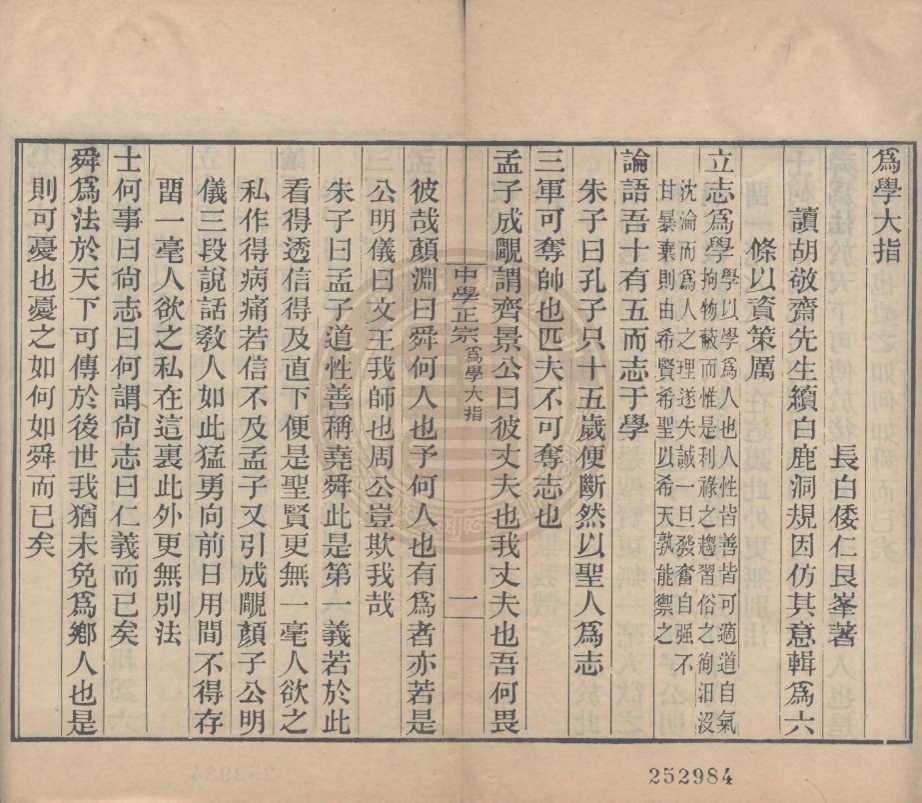 爲學大指
長白倭仁艮峯著
讀胡敬齋先生續白鹿洞規因仿其意輯爲六
條以資策厲
立志爲學學以學爲人也人性皆善皆可適道自氣
拘物蔽而惟是利祿之趨習俗之徇汨沒
沈淪而爲人之理遂失誠一旦發奮自强不
甘暴棄則由希賢希聖以希天孰能禦之
論語吾十有五而志于學
朱子曰孔子只十五歲便斷然以聖人爲志
三軍可奪帥也匹夫不可奪志也
孟子成覵謂齊景公曰彼丈夫也我丈夫也吾何畏
彼哉顏淵曰舜何人也予何人也有爲者亦若是
公明儀曰文王我師也周公豈欺我哉
朱子曰孟子道性善稱堯舜此是第一義若於此
看得透信得及直下便是聖賢更無一毫人欲之
私作得病痛若信不及孟子又引成覵顏子公明
儀三段說話敎人如此猛勇向前日用間不得存
畱一毫人欲之私在這裏此外更無別法
士何事曰尙志曰何謂尙志曰仁義而已矣
舜爲法於天下可傳於後世我猶未免爲鄕人也是
則可憂也憂之如何如舜而已矣
中學正宗 爲學大指
一
252984